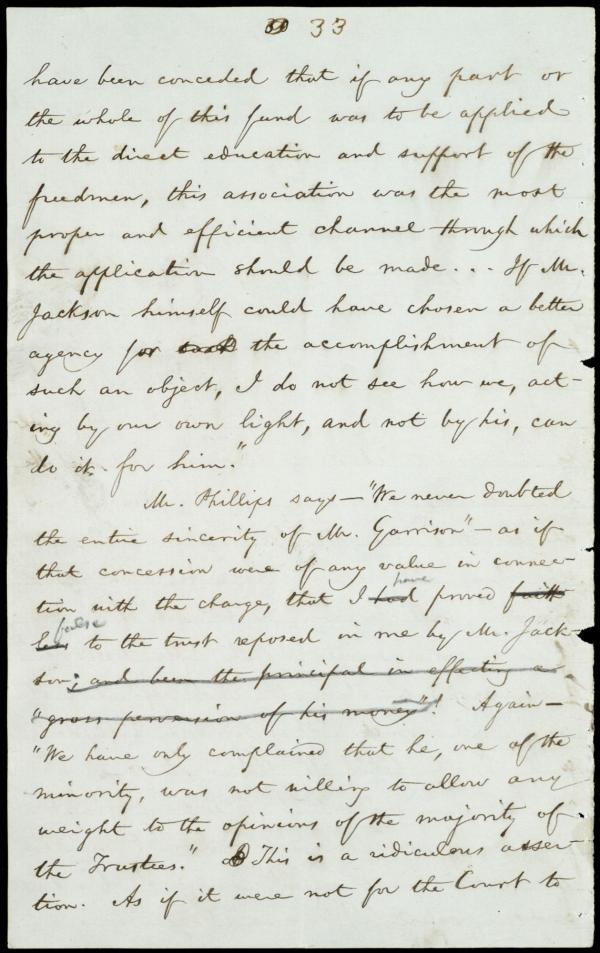 33
have been conceded that if any part or
the whole of this fund was to be applied
to the direct education and support of the
freedmen, this association was the most
proper and efficient channel through which
the application should be made... If Mr.
Jackson himself could have chosen a better
agency for the accomplishment of
such an object, I do not see how we, act-
ing by our own light, and not by his, can
do it for him."
Mr. Phillips says—"We never doubted
the entire sincerity of Mr. Garrison"—as if
that concession were of any value in connec-
tion with the charge, that I had have proved faith
less false to the trust reposed in me by Mr. Jack-
son; and been the principal in effecting a
"gross perversion of his money"! Again—
"We have only complained that he, one of the
minority, was not willing to allow any
weight to the opinions of the majority of
the Trustees." This is a ridiculous asser-
tion. As if it were not for the Court to